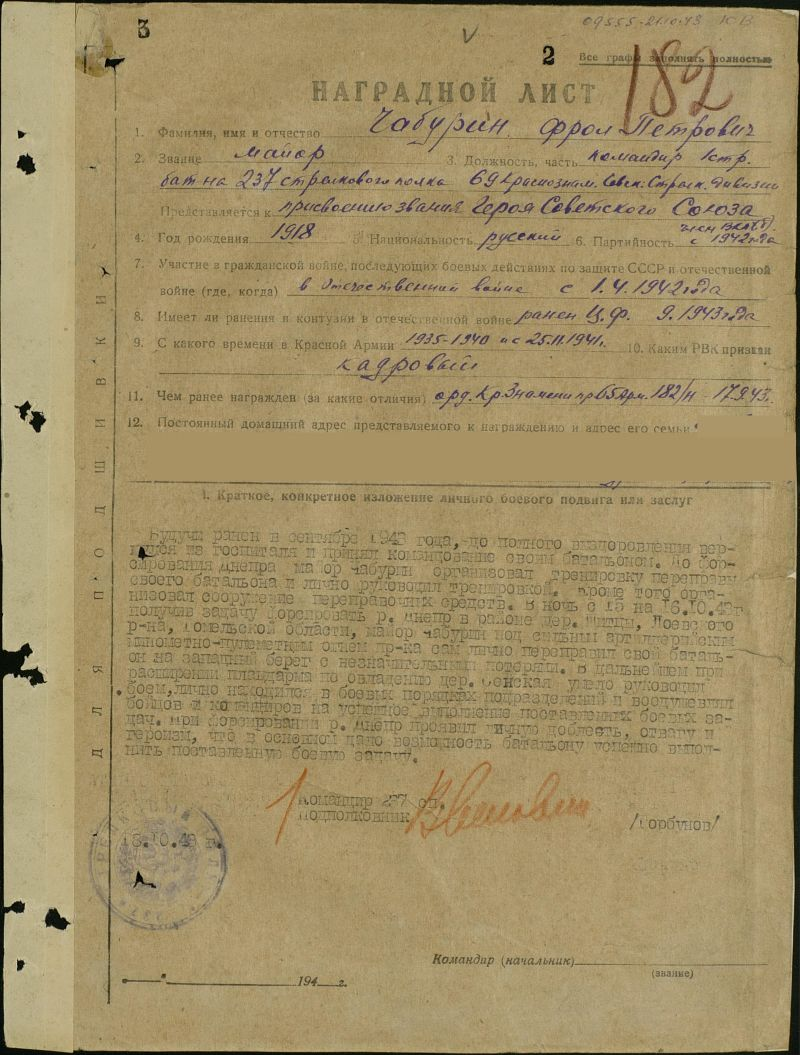 3
2
09555-21.10.43
Все графы заполнять полностью
НАГРАДНОЙ ЛИСТ
182
1. Фамилия, имя и отчество Чабурин Фрол Петрович
2. Звание майор 3. Должность, часть командир 1 стр.
бат-на 237 стрелкового полка 69 Краснознам. Севск. Стрелк. дивизии
Представляется к присвоению звания Героя Советского Союза
4. Год рождения 1918 5. Национальность русский 6. Партийность член ВКП(б) с 1942 года
7. Участие в гражданской войне, последующих боевых действиях по защите СССР и отечественной
войне (где, когда) в Отечественный войне с 1.4.1942 года
8. Имеет ли ранения и контузии в отечественной войне ранен Ц.Ф. 9.1943 года
9. С какого времени в Красной Армии 1935-1940 и с 25.11.1941г. 10. Каким РВК призван
кадровый
11. Чем ранее награжден (за какие отличия) орд. Кр Знамени пр 65 Арм. 182/н - 17.9.43г.
12. Постоянный домашний адрес представляемого к награждению и адрес его семьи
1. Краткое, конкретное изложение личного боевого подвига или заслуг
Будучи ранен в сентябре 1943 года, до полного выздоровления вер-
нулся из госпиталя и принял командование своим батальоном. До фор-
сирования Днепра майор Чабурин организовал тренировку переправы
своего батальона и лично руководил тренировкой. Кроме того орга-
низовал сооружение переправочных средств. В ночь с 15 на 16.10.43г
получив задачу форсировать р. Днепр в районе дер. Щитцы, Лоевского
р-на, Гомельской области, майор Чабурин под сильным артиллерийским
минометно-пулеметным огнем пр-ка сам лично переправил свой баталь-
он на западный берег с незначительными потерями. В дальнейшем при
расширении плацдарма по овладению дер. умело руководил
боем, лично находился в боевых порядках подразделений и воодушевлял
бойцов и командиров на успешное выполнение поставленных боевых за-
дач. При форсировании р. Днепр проявил личную доблесть, отвагу и
героизм, что в основном дало возможность батальону успешно выпол-
нить поставленную боевую задачу.
Командир 237 сп.
Подполковник /Горбунов/
18.10.43 г.
Командир (начальник)
(звание)
" " 194 г.
ДЛЯ ПОДШИВКИ